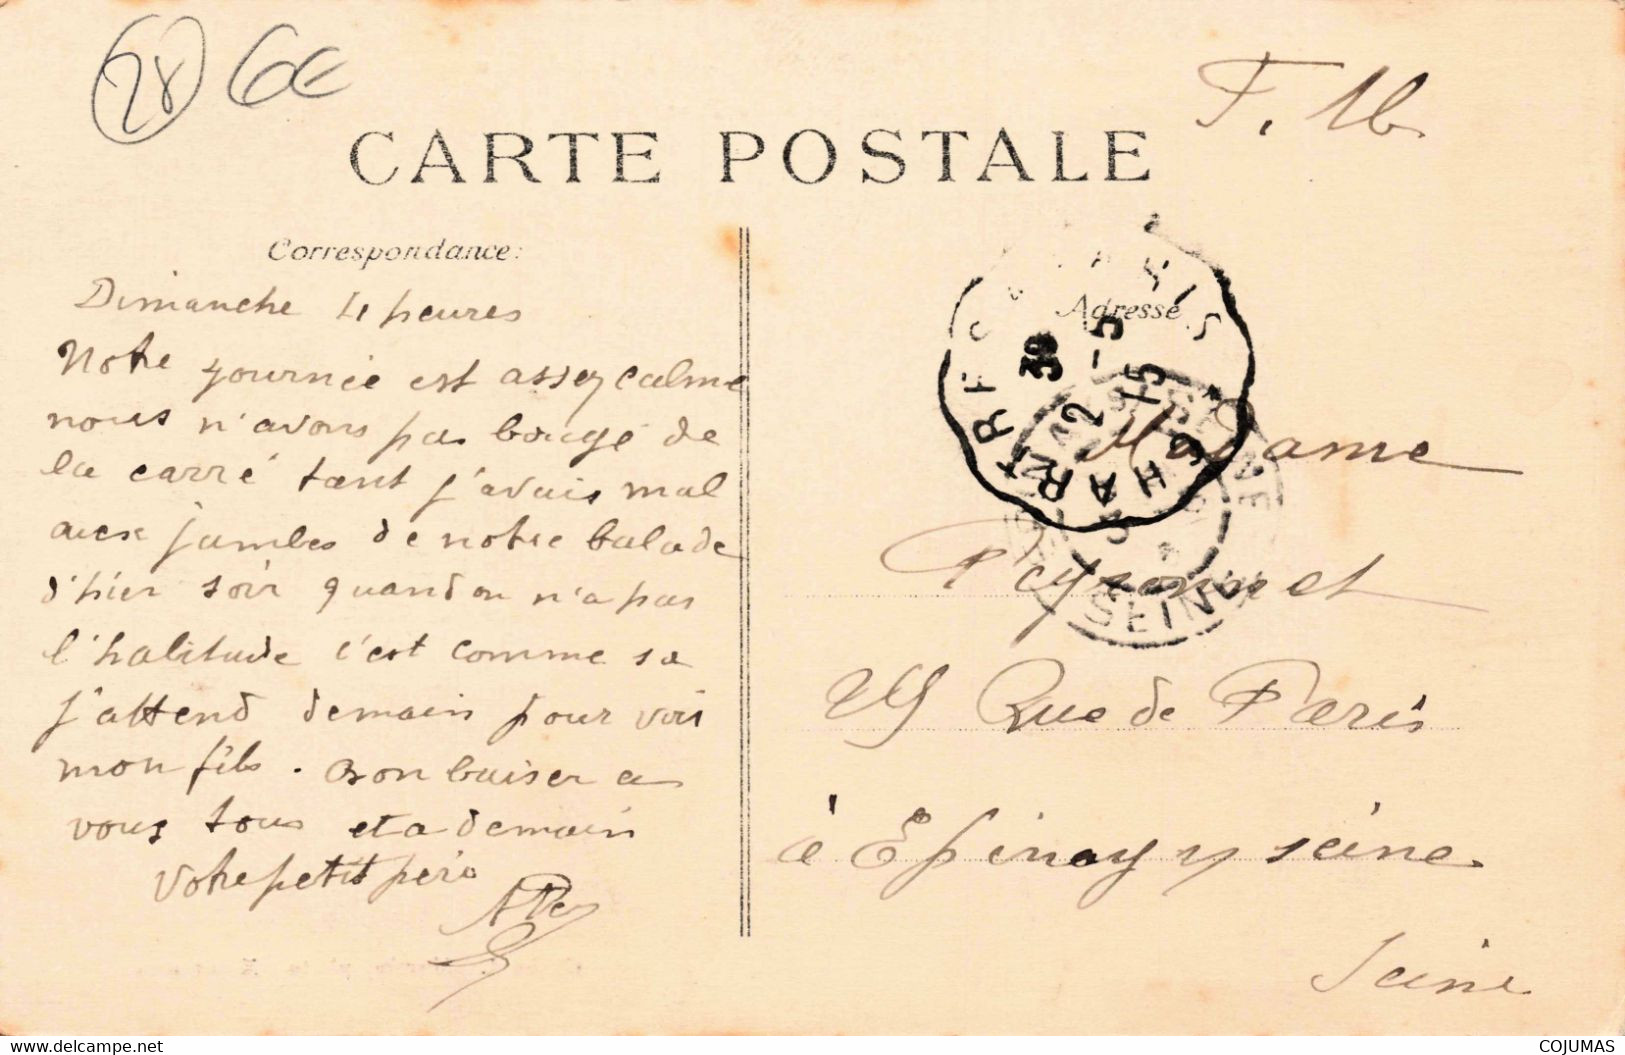 28 6€
F. M.
CARTE POSTALE
Correspondance:
Adresse
Dimanche 4 heures
Notre journée est assez calme
nous n'avons pas bougé de
la carré tant j'avais mal
aux jambes de notre balade
d'hier soir quand on n'a pas
l'habitude c'est comme sa
j'attend demain pour voir
mon fils. Bon baiser a
vous tous et a demain
Votre petit père
CHARTRES
12-5
15
SEINE
Madame
Peyronnet
Rue de Paris
à Epinay s/ seine
Seine
delcampe.net
COJUMAS